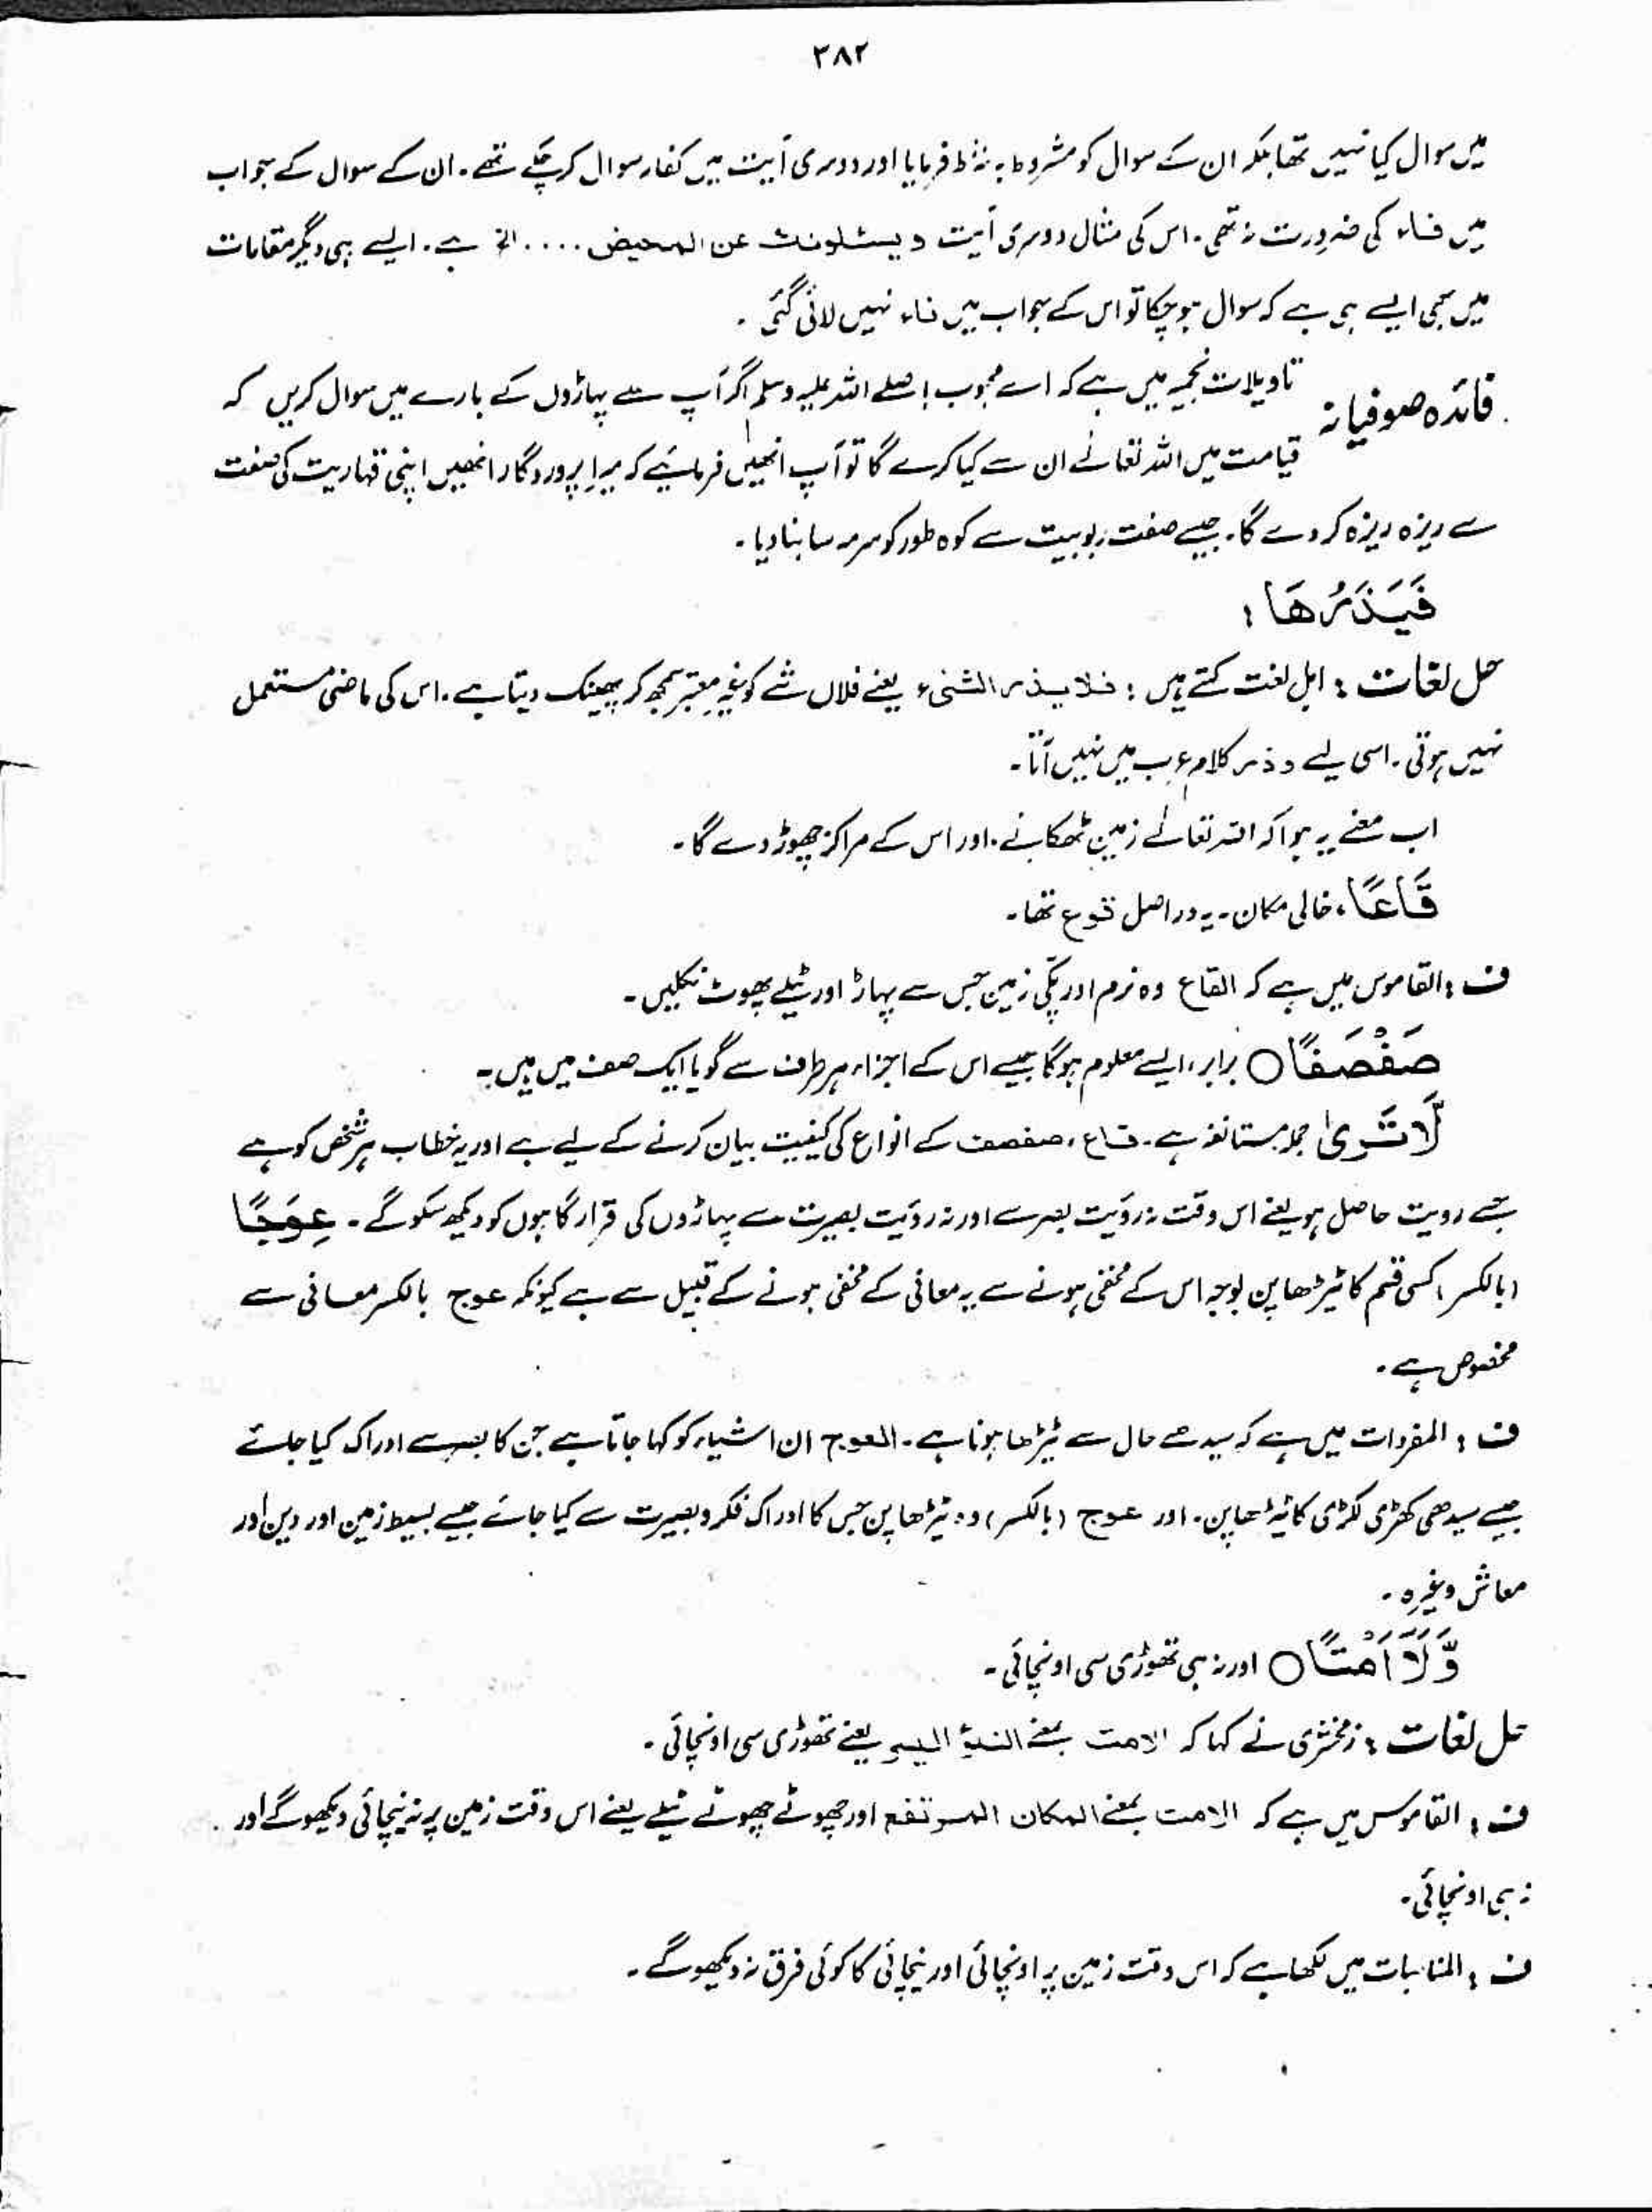 ۳۸۲
میں سوال کیا نہیں تھا بلکہ ان کے سوال کو مشروط بہ شرط فرمایا اور دوسری آیت میں کفار سوال کر چکے تھے۔ ان کے سوال کے جواب
میں فاء کی ضرورت نہ تھی۔ اس کی مثال دوسری آیت ویسئلونک عن المحیض .... الخ ہے۔ ایسے ہی دیگر مقامات
میں بھی ایسے ہی ہے کہ سوال ہو چکا تو اس کے جواب میں فاء نہیں لائی گئی۔
فائدہ صوفیانہ تاویلات نجمیہ میں ہے کہ اے محبوب! صلے اللہ علیہ وسلم اگر آپ سے پہاڑوں کے بارے میں سوال کریں کہ
قیامت میں اللہ تعالٰے ان سے کیا کرے گا تو آپ انھیں فرمائیے کہ میرا پروردگار انھیں اپنی قہاریت کی صفت
سے ریزہ ریزہ کر دے گا۔ جیسے صفت ربوبیت سے کوہ طور کو سرمہ سا بنا دیا۔
فَیَذَرُھَا :
حل لغات : اہل لغت کہتے ہیں : فلا یذر الشیء یعنے فلاں شے کو غیر معتبر سمجھ کر پھینک دیتا ہے۔ اس کی ماضی مستعمل
نہیں ہوتی۔ اسی لیے وذر کلام عرب میں نہیں آتا۔
اب معنے یہ ہوا کہ اللہ تعالٰے زمین ٹھکانے۔ اور اس کے مراکز چھوڑ دے گا۔
قَاعًا، خالی مکان۔ یہ دراصل قوع تھا۔
ف : القاموس میں ہے کہ القاع وہ نرم اور پکی زمین جس سے پہاڑ اور ٹیلے پھوٹ نکلیں۔
صَفْصَفًا ○ برابر، ایسے معلوم ہوگا جیسے اس کے اجزاء ہر طرف سے گویا ایک صف میں ہیں۔
لَّا تَرٰی جملہ مستانفہ ہے۔ قاع، صفصف کے انواع کی کیفیت بیان کرنے کے لیے ہے اور یہ خطاب ہر شخص کو ہے
جسے رویت حاصل ہو یعنے اس وقت نہ رؤیت بصر سے اور نہ رؤیت بصیرت سے پہاڑوں کی قرار گاہوں کو دیکھ سکو گے۔ عِوَجًا
(بالکسر) کسی قسم کا ٹیڑھا پن بوجہ اس کے مخفی ہونے سے یہ معانی کے مخفی ہونے کے قبیل سے ہے کیونکہ عوج بالکسر معانی سے
مخصوص ہے۔
ف : المفردات میں ہے کہ سیدھے حال سے ٹیڑھا ہونا ہے۔ العوج ان اشیاء کو کہا جاتا ہے جن کا بصر سے ادراک کیا جائے
جیسے سیدھی کھڑی لکڑی کا ٹیڑھا پن۔ اور عوج (بالکسر) وہ ٹیڑھا پن جس کا ادراک فکر و بصیرت سے کیا جائے جیسے بسیط زمین اور دین اور
معاش وغیرہ۔
وَّ لَآ اَمْتًا ○ اور نہ ہی تھوڑی سی اونچائی۔
حل لغات : زمخشری نے کہا کہ الامت بمعنے النتؤ الیسیر یعنے تھوڑی سی اونچائی۔
ف : القاموس میں ہے کہ الامت بمعنے المکان المرتفع اور چھوٹے چھوٹے ٹیلے یعنے اس وقت زمین پر نہ نیچائی دیکھو گے اور
نہ ہی اونچائی۔
ف : المناسبات میں لکھا ہے کہ اس وقت زمین پر اونچائی اور نیچائی کا کوئی فرق نہ دیکھو گے۔